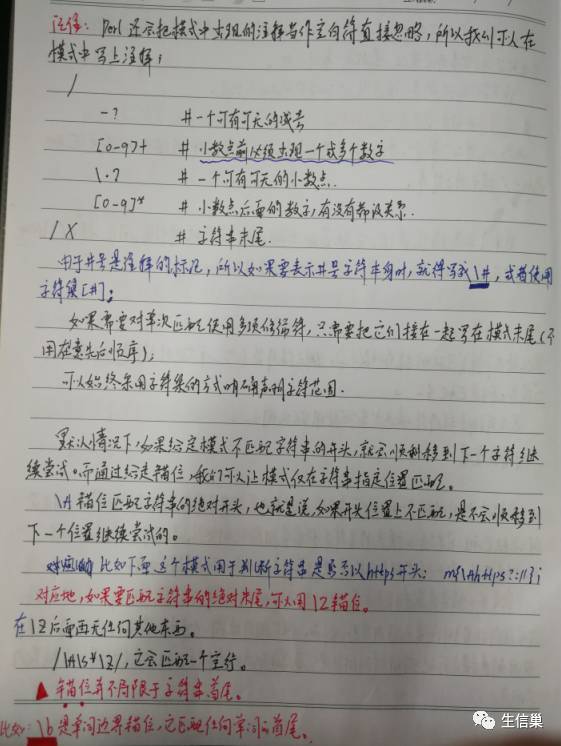 注释：Perl 还会把模式中出现的注释当作空白符直接忽略，所以我们可以在
模式中写上注释：
/
-? #一个可有可无的减号
[0-9]+ # 小数点前必须出现一个或多个数字
\.? # 一个可有可无的小数点.
[0-9]* # 小数点后面的数字,有没有都没关系.
/X # 字符串末尾.
由于井号是注释的标记，所以如果要表示井号字符本身时，就得写成\#，或者使用
字符集[#]；
如果需要对单次匹配使用多项修饰符，只需要把它们接在一起写在模式末尾(不
用在意先后顺序)；
可以始终采用字符集的方式明确声明字符范围.
默认情况下，如果给定模式不匹配字符串的开头，就会顺利移到下一个字符继
续尝试。而通过给定锚位，我们可以让模式仅在字符串指定位置匹配。
\A 锚位匹配字符串的绝对开头，也就是说，如果开头位置上不匹配，是不会顺移到
下一个位置继续尝试的。
比如下面这个模式用于判断字符串是否以https开头： m{\Ahttps?://}i
对应地，如果要匹配字符串的绝对末尾，可以用\Z锚位。
在\Z后面再无任何其他东西。
/\A\s*\Z/，它会匹配一个空行。
▲ 锚位并不局限于字符串首尾。
比如：\b 是单词边界锚位，它匹配任何单词的首尾。
生信巢